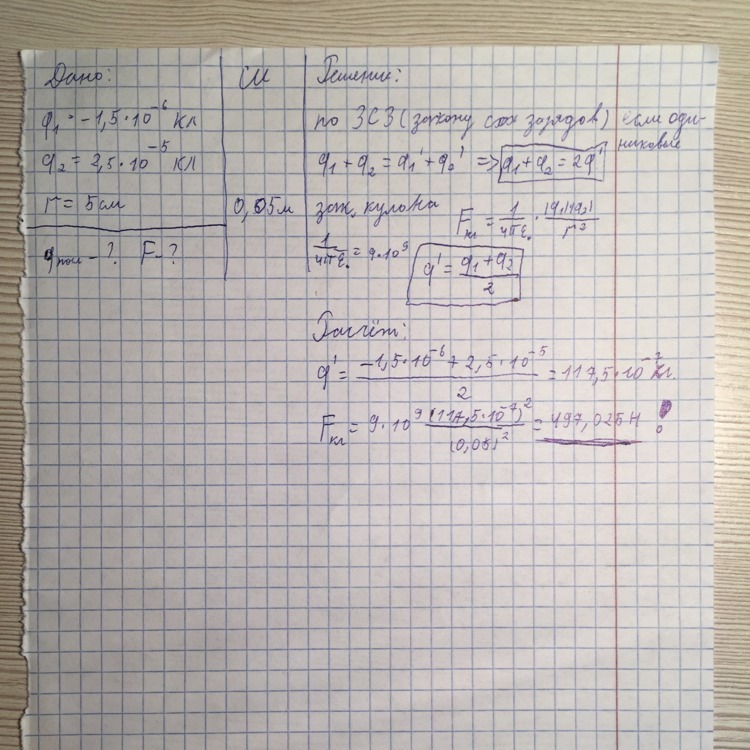 Дано:
q₁ = -1,5·10⁻⁶ Кл
q₂ = 2,5·10⁻⁵ Кл
r = 5 см
q - ? F - ?
СИ
0,05 м
Решение:
по ЗСЗ (закону сох зарядов) если оди-
наковые
q₁ + q₂ = q₁' + q₂' => q₁ + q₂ = 2q'
зак. кулона Fкл = 1/4πε₀ · |q₁||q₂|/r²
1/4πε₀ = 9·10⁹
q' = q₁ + q₂/2
Расчёт:
q' = -1,5·10⁻⁶ + 2,5·10⁻⁵/2 = 117,5·10⁻⁷ Кл.
Fкл = 9·10⁹ (117,5·10⁻⁷)²/(0,05)² = 497,025 Н !